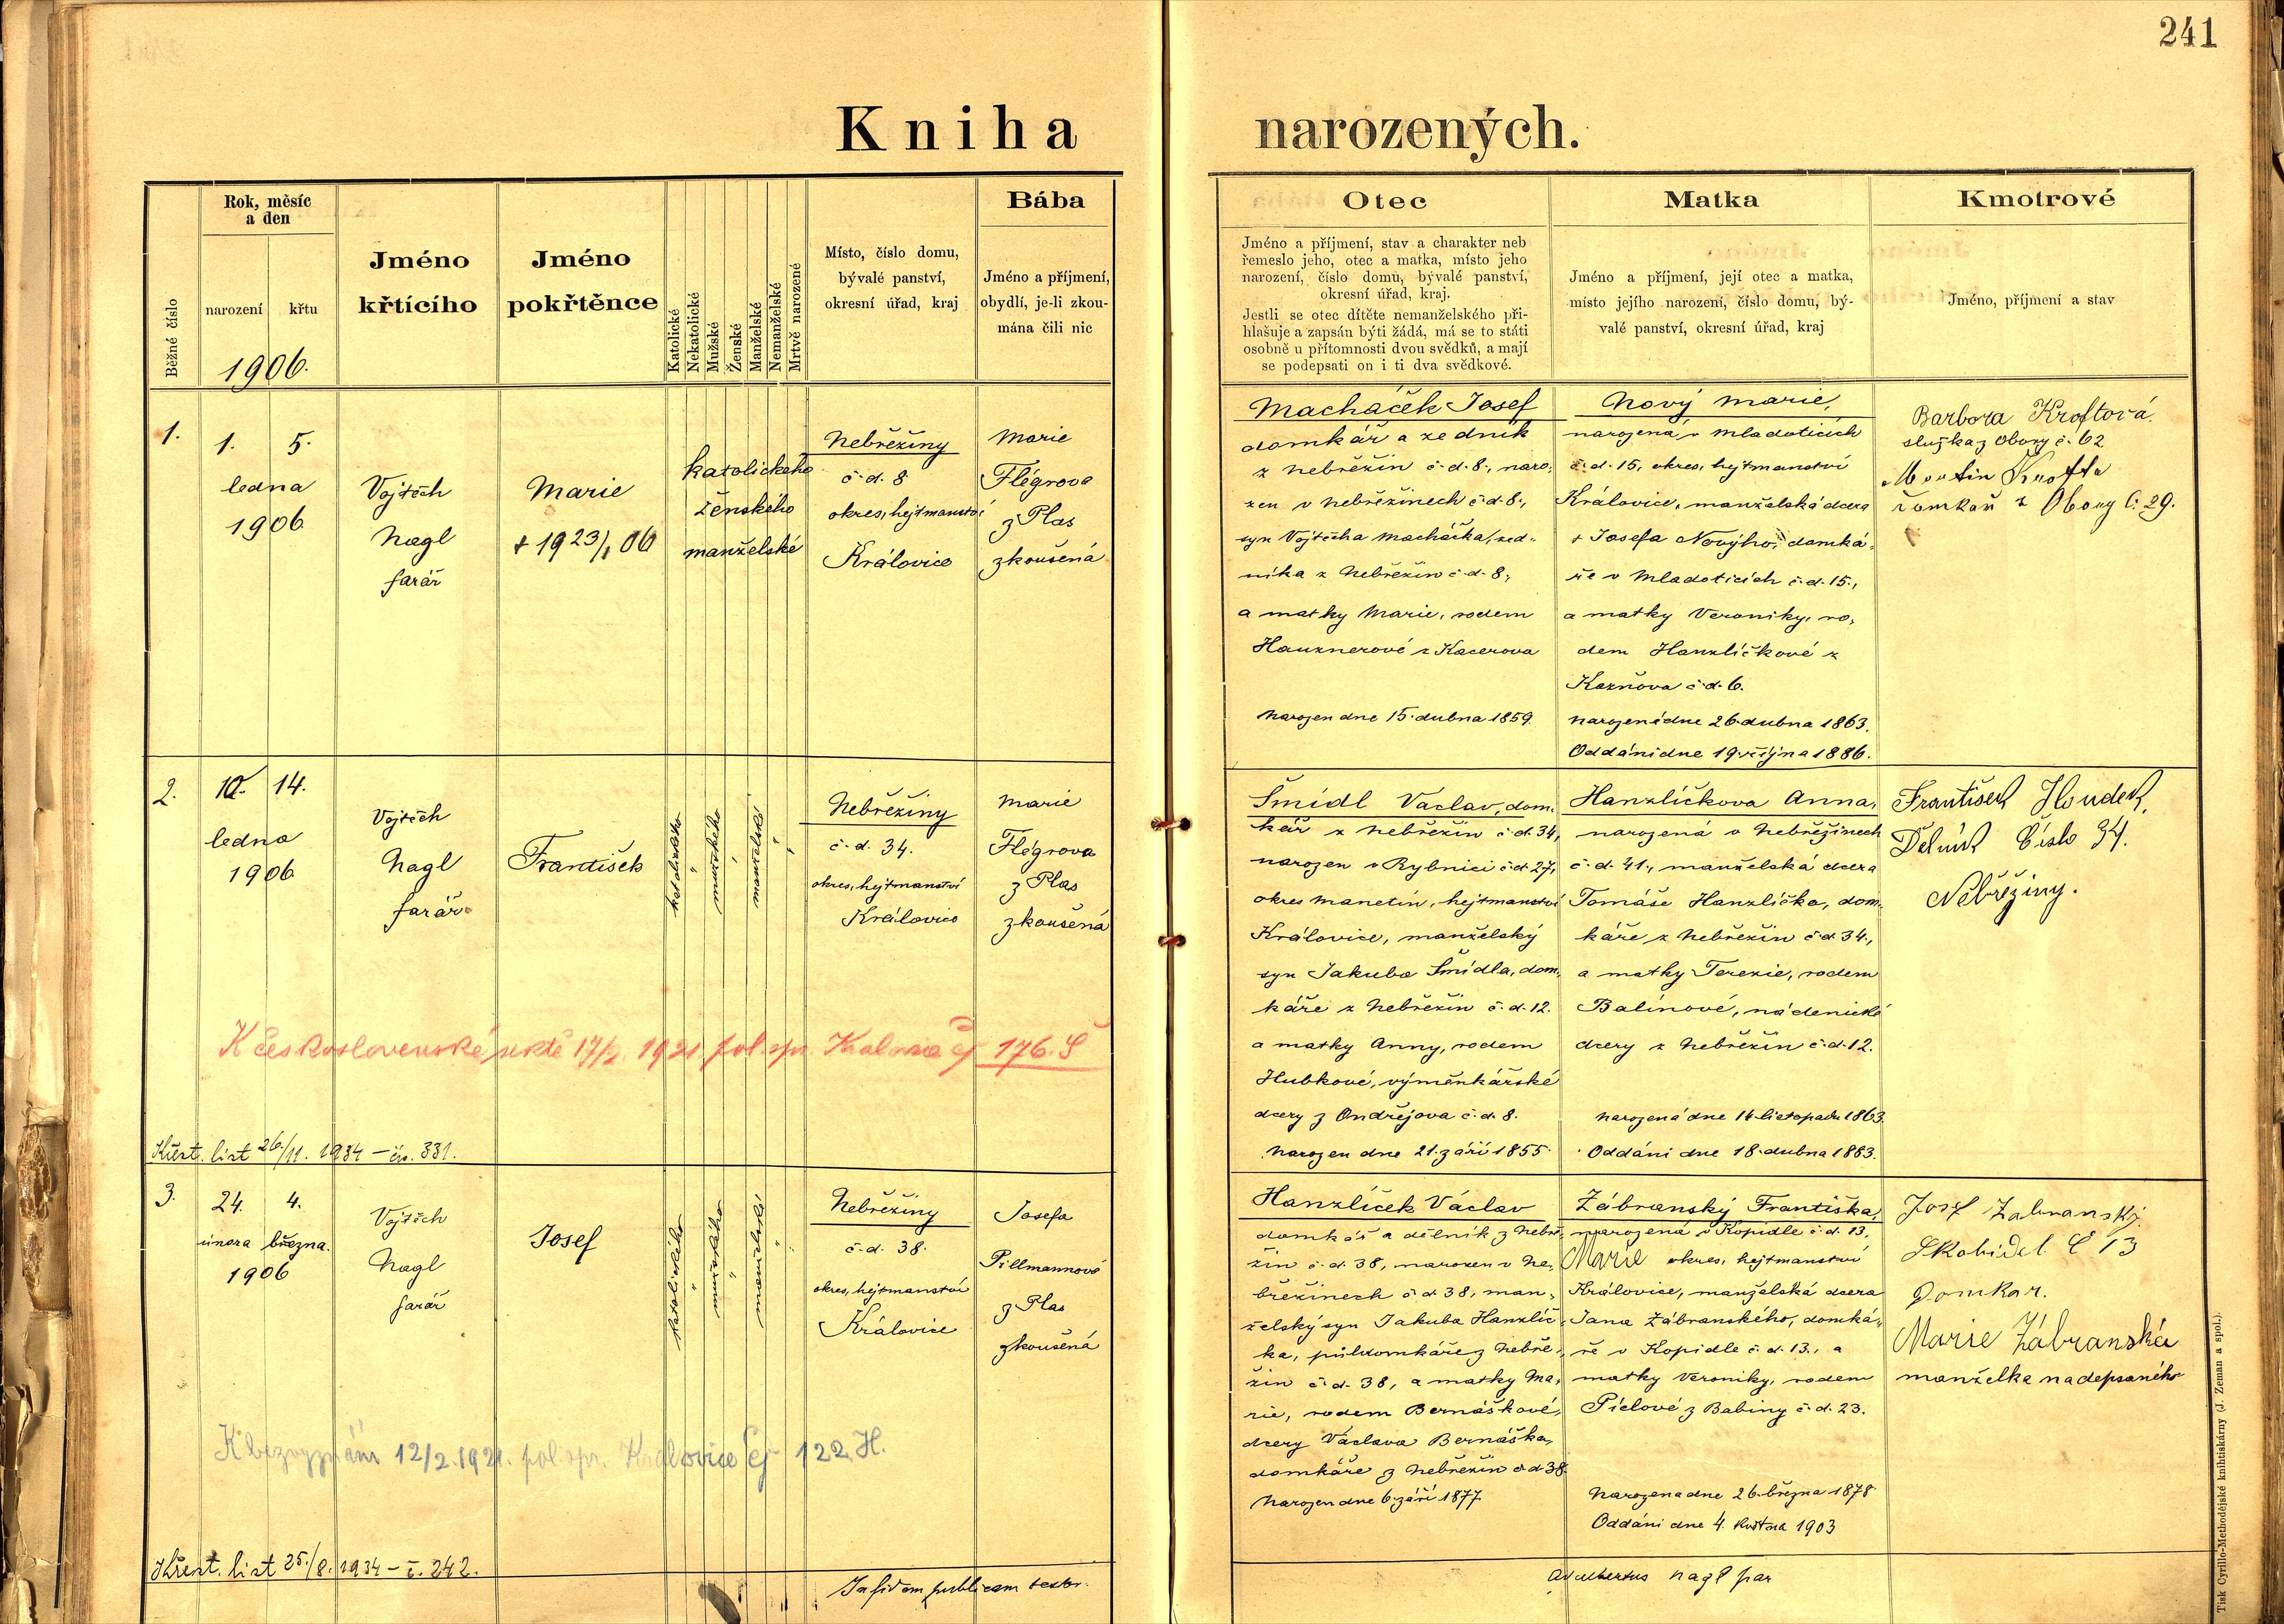 241
Kniha narozených.
Běžné číslo
Rok, měsíc
a den
narození
křtu
1906.
Jméno
křtícího
Jméno
pokřtěnce
Katolické
Nekatolické
Mužské
Ženské
Manželské
Nemanželské
Mrtvě narozené
Místo, číslo domu,
bývalé panství,
okresní úřad, kraj
Bába
Jméno a příjmení,
obydlí, je-li zkou-
mána čili nic
Otec
Jméno a příjmení, stav a charakter neb
řemeslo jeho, otec a matka, místo jeho
narození, číslo domu, bývalé panství,
okresní úřad, kraj.
Jestli se otec dítěte nemanželského při-
hlašuje a zapsán býti žádá, má se to státi
osobně u přítomnosti dvou svědků, a mají
se podepsati on i ti dva svědkové.
Matka
Jméno a příjmení, její otec a matka,
místo jejího narození, číslo domu, bý-
valé panství, okresní úřad, kraj
Kmotrové
Jméno, příjmení a stav
1.
1. 5.
ledna
1906
Vojtěch
Nagl
farář
Marie
+ 19 23/1 06
katolického
ženského
manželské
Nebřežiny
č. d. 8
okres, hejtmanství
Královice
Marie
Flégrova
z Plas
zkoušená
Macháček Josef
domkář a zedník
z Nebřežin č. d. 8., naro-
zen v Nebřežinech č. d. 8.,
syn Vojtěcha Macháčka, zed-
níka z Nebřežin č. d. 8.,
a matky Marie, rodem
Hauznerové z Kacerova
Narozen dne 15. dubna 1859.
Nový Marie,
narozená v Mladoticích
č. d. 15, okres, hejtmanství
Královice, manželská dcera
+ Josefa Nového, domká-
ře v Mladoticích č. d. 15.,
a matky Veroniky, ro-
dem Hanzlíčkové z
Kaznova č. d. 6.
narozené dne 26. dubna 1863.
Oddáni dne 19. října 1886.
Barbora Kroftová
služka z Obory č. 62
Martin Krofta
Domkař z Obory č. 29.
2.
10. 14.
ledna
1906
Vojtěch
Nagl
farář
František
katolického
mužského
manželské
Nebřežiny
č. d. 34.
okres, hejtmanství
Královice
Marie
Flégrova
z Plas
zkoušená
Šmídl Václav, dom-
kář z Nebřežin č. d. 34,
narozen v Rybnici č. d. 27,
okres Manetín, hejtmanství
Královice, manželský
syn Jakuba Šmídla, dom-
káře z Nebřežin č. d. 12.
a matky Anny, rodem
Hubkové, výměnkářské
dcery z Ondřejova č. d. 8.
Narozen dne 21. září 1855.
Hanzlíčkova Anna,
narozená v Nebřežinech
č. d. 41., manželská dcera
Tomáše Hanzlíčka, dom-
káře z Nebřežin č. d. 34.,
a matky Terezie, rodem
Balínové, nádenické
dcery z Nebřežin č. d. 12.
narozená dne 14. listopadu 1863.
Oddáni dne 18. dubna 1883.
František Houdek,
Dělník Číslo 34.
Nebřežiny.
K československé sektě 17/2. 1921 pol. spr. Kralovice čj 176. Š
Křest. list 26./11. 1934 – čís. 331.
3.
24. 4.
února března.
1906
Vojtěch
Nagl
farář
Josef
katolického
mužského
manželské
Nebřežiny
č. d. 38.
okres, hejtmanství
Královice
Josefa
Pillmannová
z Plas
zkoušená
Hanzlíček Václav
domkář a dělník z Nebře-
žin č. d. 38, narozen v Ne-
břežinech č. d. 38, man-
želský syn Jakuba Hanzlíč-
ka, půldomkáře z Nebře-
žin č. d. 38, a matky Ma-
rie, rodem Bernáškové,
dcery Václava Bernáška,
domkáře z Nebřežin č. d. 38.
Narozen dne 6. září 1877.
Zábranský Františka,
narozená v Kopidle č. d. 13,
Marie okres, hejtmanství
Královice, manželská dcera
Jana Zábranského, domká-
ře v Kopidle č. d. 13., a
matky Veroniky, rodem
Píclové z Babiny č. d. 23.
Narozena dne 26. března 1878.
Oddáni dne 4. května 1903
Josef Zabranský
Č 13
Domkar.
Marie Zábranská
manželka nadepsaného
K bezvyznání 12/2. 1921. pol. spr. Kralovice čj 122. H.
Křest. list 25./8. 1934 – č. 242.
In fidem publicam testor.
Adalbertus Nagl par
Tisk Cyrillo-Methodějské knihtiskárny (J. Zeman a spol.).